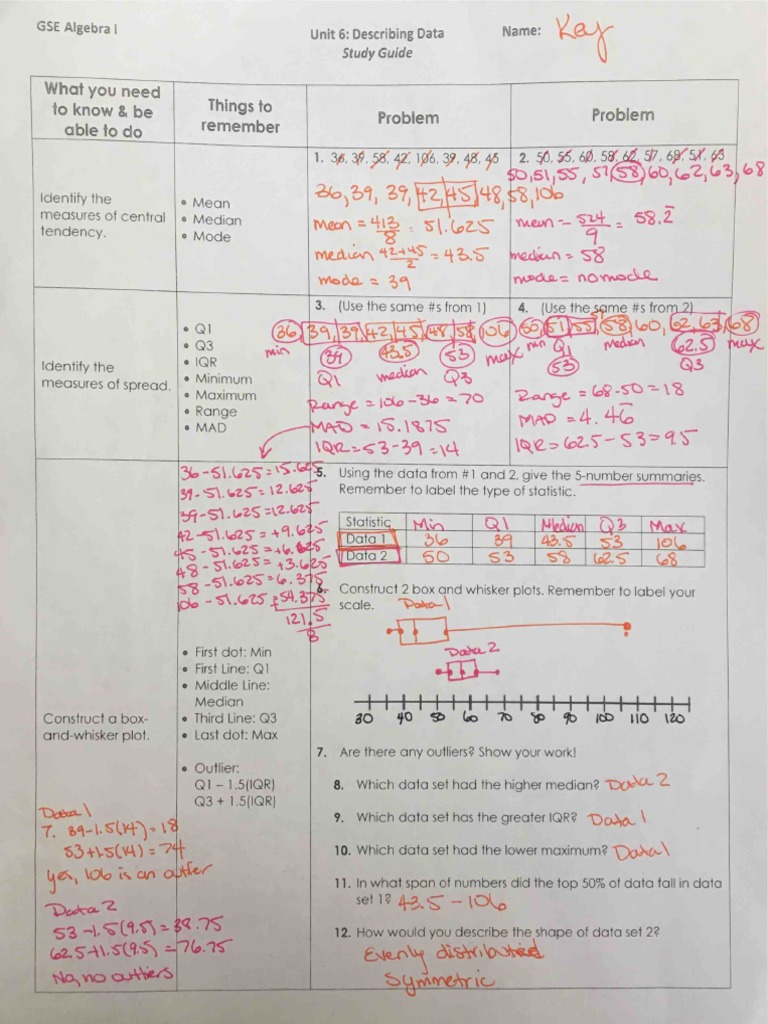 GSE Algebra I
Unit 6: Describing Data
Study Guide
Name: Key
What you need to know & be able to do
Things to remember
Problem
Problem
Identify the measures of central tendency.
• Mean
• Median
• Mode
1. 36, 39, 58, 42, 106, 39, 48, 45
36, 39, 39, 42, 45, 48, 58, 106
mean = 413/8 = 51.625
median 42+45/2 = 43.5
mode = 39
2. 50, 55, 60, 58, 62, 57, 68, 51, 63
50, 51, 55, 57, 58, 60, 62, 63, 68
mean = 524/9 = 58.2
median = 58
mode = no mode
Identify the measures of spread.
• Q1
• Q3
• IQR
• Minimum
• Maximum
• Range
• MAD
3. (Use the same #s from 1)
36, 39, 39, 42, 45, 48, 58, 106
min 39 43.5 53 max
Q1 median Q3
Range = 106-36 = 70
MAD = 15.1875
IQR = 53-39 = 14
4. (Use the same #s from 2)
50, 51, 55, 57, 58, 60, 62, 63, 68
min Q1 median 62.5 max
53 Q3
Range = 68-50 = 18
MAD = 4.46
IQR = 62.5-53 = 9.5
36-51.625=15.625
39-51.625=12.625
39-51.625=12.625
42-51.625=+9.625
45-51.625=+6.625
48-51.625=+3.625
58-51.625=6.375
106-51.625=+54.375
121.5
8
Construct a box-and-whisker plot.
• First dot: Min
• First Line: Q1
• Middle Line: Median
• Third Line: Q3
• Last dot: Max
• Outlier:
Q1 – 1.5(IQR)
Q3 + 1.5(IQR)
5. Using the data from #1 and 2, give the 5-number summaries.
Remember to label the type of statistic.
Statistic Min Q1 Median Q3 Max
Data 1 36 39 43.5 53 106
Data 2 50 53 58 62.5 68
6. Construct 2 box and whisker plots. Remember to label your
scale. Data 1
Data 2
30 40 50 60 70 80 90 100 110 120
7. Are there any outliers? Show your work!
8. Which data set had the higher median? Data 2
9. Which data set has the greater IQR? Data 1
10. Which data set had the lower maximum? Data 1
11. In what span of numbers did the top 50% of data fall in data
set 1? 43.5 - 106
12. How would you describe the shape of data set 2?
Evenly distributed
Symmetric
Data 1
7. 39-1.5(14) = 18
53+1.5(14) = 74
yes, 106 is an outlier
Data 2
53-1.5(9.5) = 38.75
62.5+1.5(9.5) = 76.75
No, no outliers